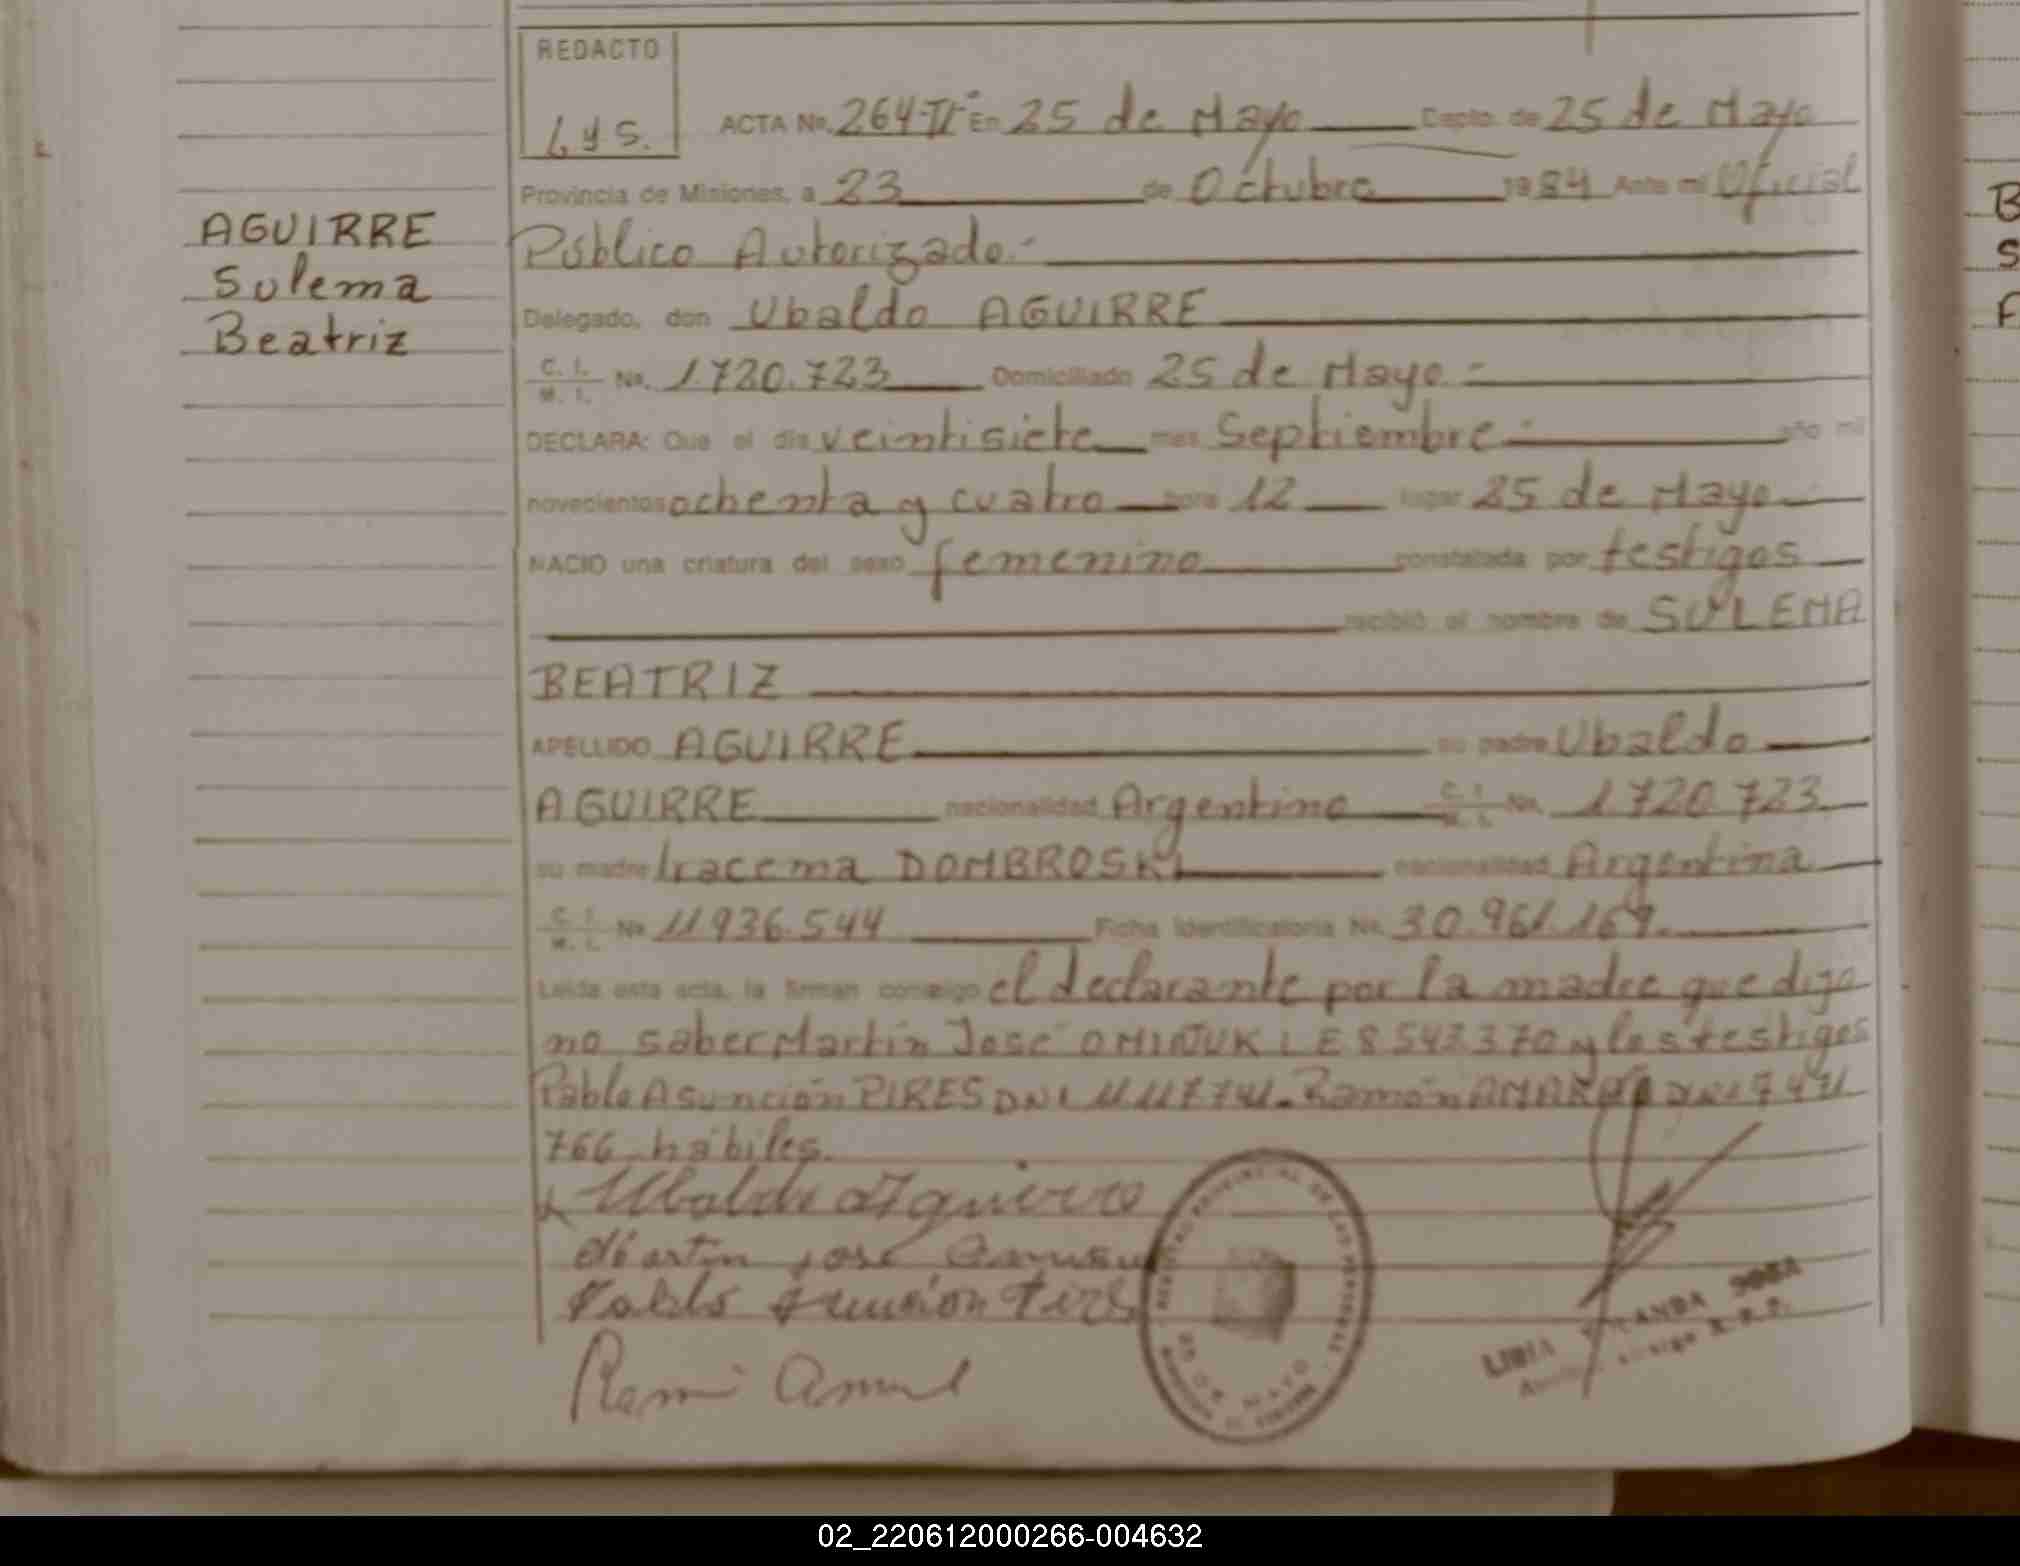 REDACTO
Lys.
ACTA No. 264-Tº En 25 de Mayo Depto. de 25 de Mayo
Provincia de Misiones, a 23 de Octubre 1984 Ante mí Oficial
Público Autorizado.-
Delegado, don Ubaldo AGUIRRE
C. I. M. I. No. 1.720.723 Domiciliado 25 de Mayo.-
DECLARA: Que el día veintisiete mes Septiembre.- año mil
novecientos ochenta y cuatro hora 12 lugar 25 de Mayo
NACIO una criatura del sexo femenino constatada por testigos
recibió el nombre de SULEMA
BEATRIZ
APELLIDO AGUIRRE su padre Ubaldo
AGUIRRE nacionalidad Argentino C. I. M. I. No. 1 720 723
su madre Iracema DOMBROSKI nacionalidad Argentina
C. I. M. I. No 11 936.544 Ficha Identificatoria No. 30.961.169.
Leída esta acta, la firman conmigo el declarante por la madre que dijo
no saber Martín José L E 8 543 370 y los testigos
Pablo Asunción PIRES DNI Ramón
766 hábiles.
Ubaldo Aguirre
Martín José
Pablo Asunción Pires
Ramón
25 DE MAYO
AGUIRRE
Sulema
Beatriz
B
S
A
02_220612000266-004632